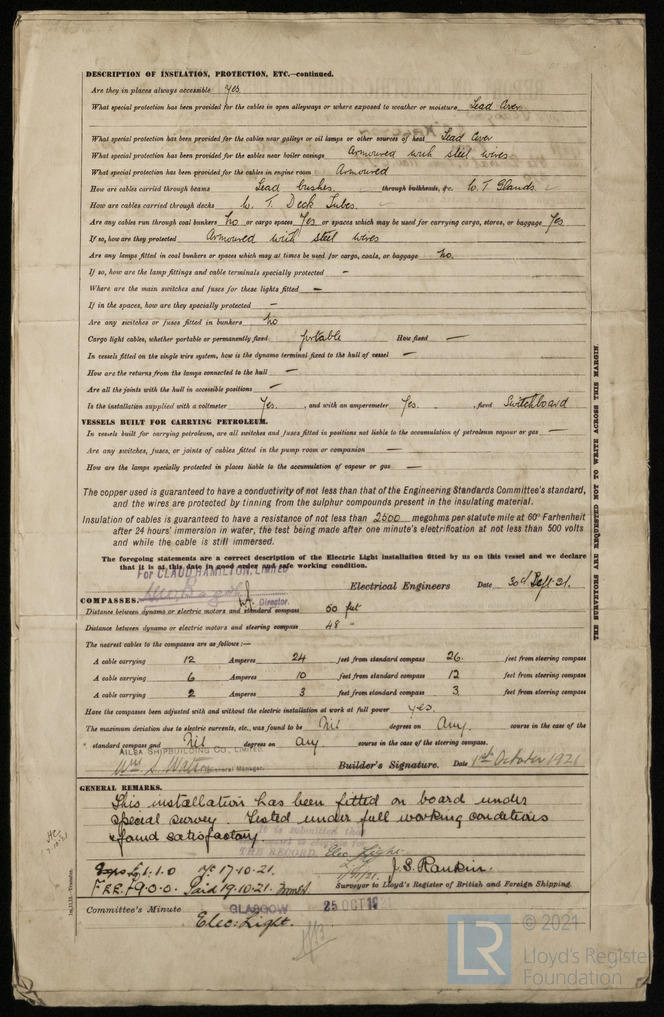 DESCRIPTION OF INSULATION, PROTECTION, ETC.—continued.
Are they in places always accessible yes
What special protection has been provided for the cables in open alleyways or where exposed to weather or moisture Lead Over
What special protection has been provided for the cables near galleys or oil lamps or other sources of heat Lead Over
What special protection has been provided for the cables near boiler casings Armoured with steel wires
What special protection has been provided for the cables in engine room Armoured
How are cables carried through beams Lead bushes. through bulkheads, &c. W. T. Glands.
How are cables carried through decks W. T. Deck Tubes.
Are any cables run through coal bunkers No or cargo spaces Yes or spaces which may be used for carrying cargo, stores, or baggage Yes
If so, how are they protected Armoured with steel wires
Are any lamps fitted in coal bunkers or spaces which may at times be used for cargo, coals, or baggage No.
If so, how are the lamp fittings and cable terminals specially protected —
Where are the main switches and fuses for these lights fitted —
If in the spaces, how are they specially protected —
Are any switches or fuses fitted in bunkers No
Cargo light cables, whether portable or permanently fixed portable How fixed —
In vessels fitted on the single wire system, how is the dynamo terminal fixed to the hull of vessel —
How are the returns from the lamps connected to the hull —
Are all the joints with the hull in accessible positions —
Is the installation supplied with a voltmeter Yes. , and with an amperemeter Yes. , fixed Switchboard
VESSELS BUILT FOR CARRYING PETROLEUM.
In vessels built for carrying petroleum, are all switches and fuses fitted in positions not liable to the accumulation of petroleum vapour or gas —
Are any switches, fuses, or joints of cables fitted in the pump room or companion —
How are the lamps specially protected in places liable to the accumulation of vapour or gas —
The copper used is guaranteed to have a conductivity of not less than that of the Engineering Standards Committee's standard,
and the wires are protected by tinning from the sulphur compounds present in the insulating material.
Insulation of cables is guaranteed to have a resistance of not less than 2500 megohms per statute mile at 60° Farhenheit
after 24 hours' immersion in water, the test being made after one minute's electrification at not less than 500 volts
and while the cable is still immersed.
The foregoing statements are a correct description of the Electric Light installation fitted by us on this vessel and we declare
that it is at this date in good order and safe working condition.
For CLAUD HAMILTON, LIMITED
Electrical Engineers Date 30th Sept 21.
Director.
COMPASSES.
Distance between dynamo or electric motors and standard compass 50 feet
Distance between dynamo or electric motors and steering compass 48 "
The nearest cables to the compasses are as follows:—
A cable carrying 12 Amperes 24 feet from standard compass 26. feet from steering compass
A cable carrying 6 Amperes 10 feet from standard compass 12 feet from steering compass
A cable carrying 2 Amperes 3 feet from standard compass 3 feet from steering compass
Have the compasses been adjusted with and without the electric installation at work at full power yes.
The maximum deviation due to electric currents, etc., was found to be Nil degrees on Any. course in the case of the
standard compass and Nil degrees on any. course in the case of the steering compass.
AILSA SHIPBUILDING CO., LIMITED.
General Manager. Builder's Signature. Date 1st October 1921
GENERAL REMARKS.
This installation has been fitted on board under
special survey. Tested under full working conditions
& found satisfactory.
It is submitted that
THE RECORD. Elec. Light.
J. S. Rankin.
Surveyor to Lloyd's Register of British and Foreign Shipping.
17-10-21.
Paid 19.10.21.
Committee's Minute GLASGOW 25 OCT 1921
Elec: Light.
THE SURVEYORS ARE REQUESTED NOT TO WRITE ACROSS THIS MARGIN
LR
© 2021
Lloyd's Register
Foundation